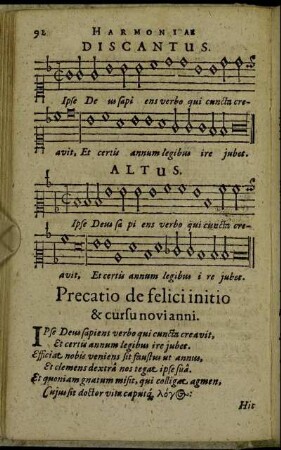 92 HARMONIAE
DISCANTUS.
Ipse De us sapi ens verbo qui cuncta cre-
avit, Et certis annum legibus ire jubet.
ALTUS.
Ipse Deus sa pi ens verbo qui cuncta cre-
avit, Et certis annum legibus i re jubet.
Precatio de felici initio
& cursu novi anni.
IPse Deus sapiens verbo qui cuncta creavit,
Et certis annum legibus ire jubet.
Efficiat nobis veniens sit faustus ut annus,
Et clemens dextrâ nos tegat ipse suâ.
Et quoniam gnatum misit, qui colligat agmen,
Cujus sit doctor vita caputq́, λόγος:
Hic